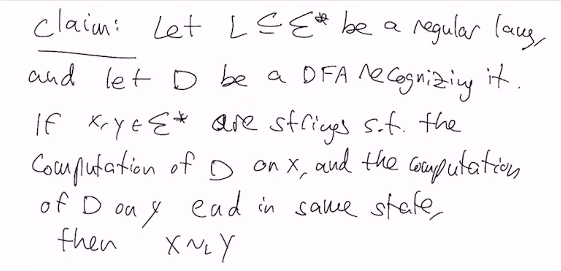 Claim: Let L ⊆ Σ* be a regular lang,
and let D be a DFA recognizing it.
If x,y ∈ Σ* are strings s.t. the
Computation of D on x, and the computation
of D on y end in same state,
then x ~L y